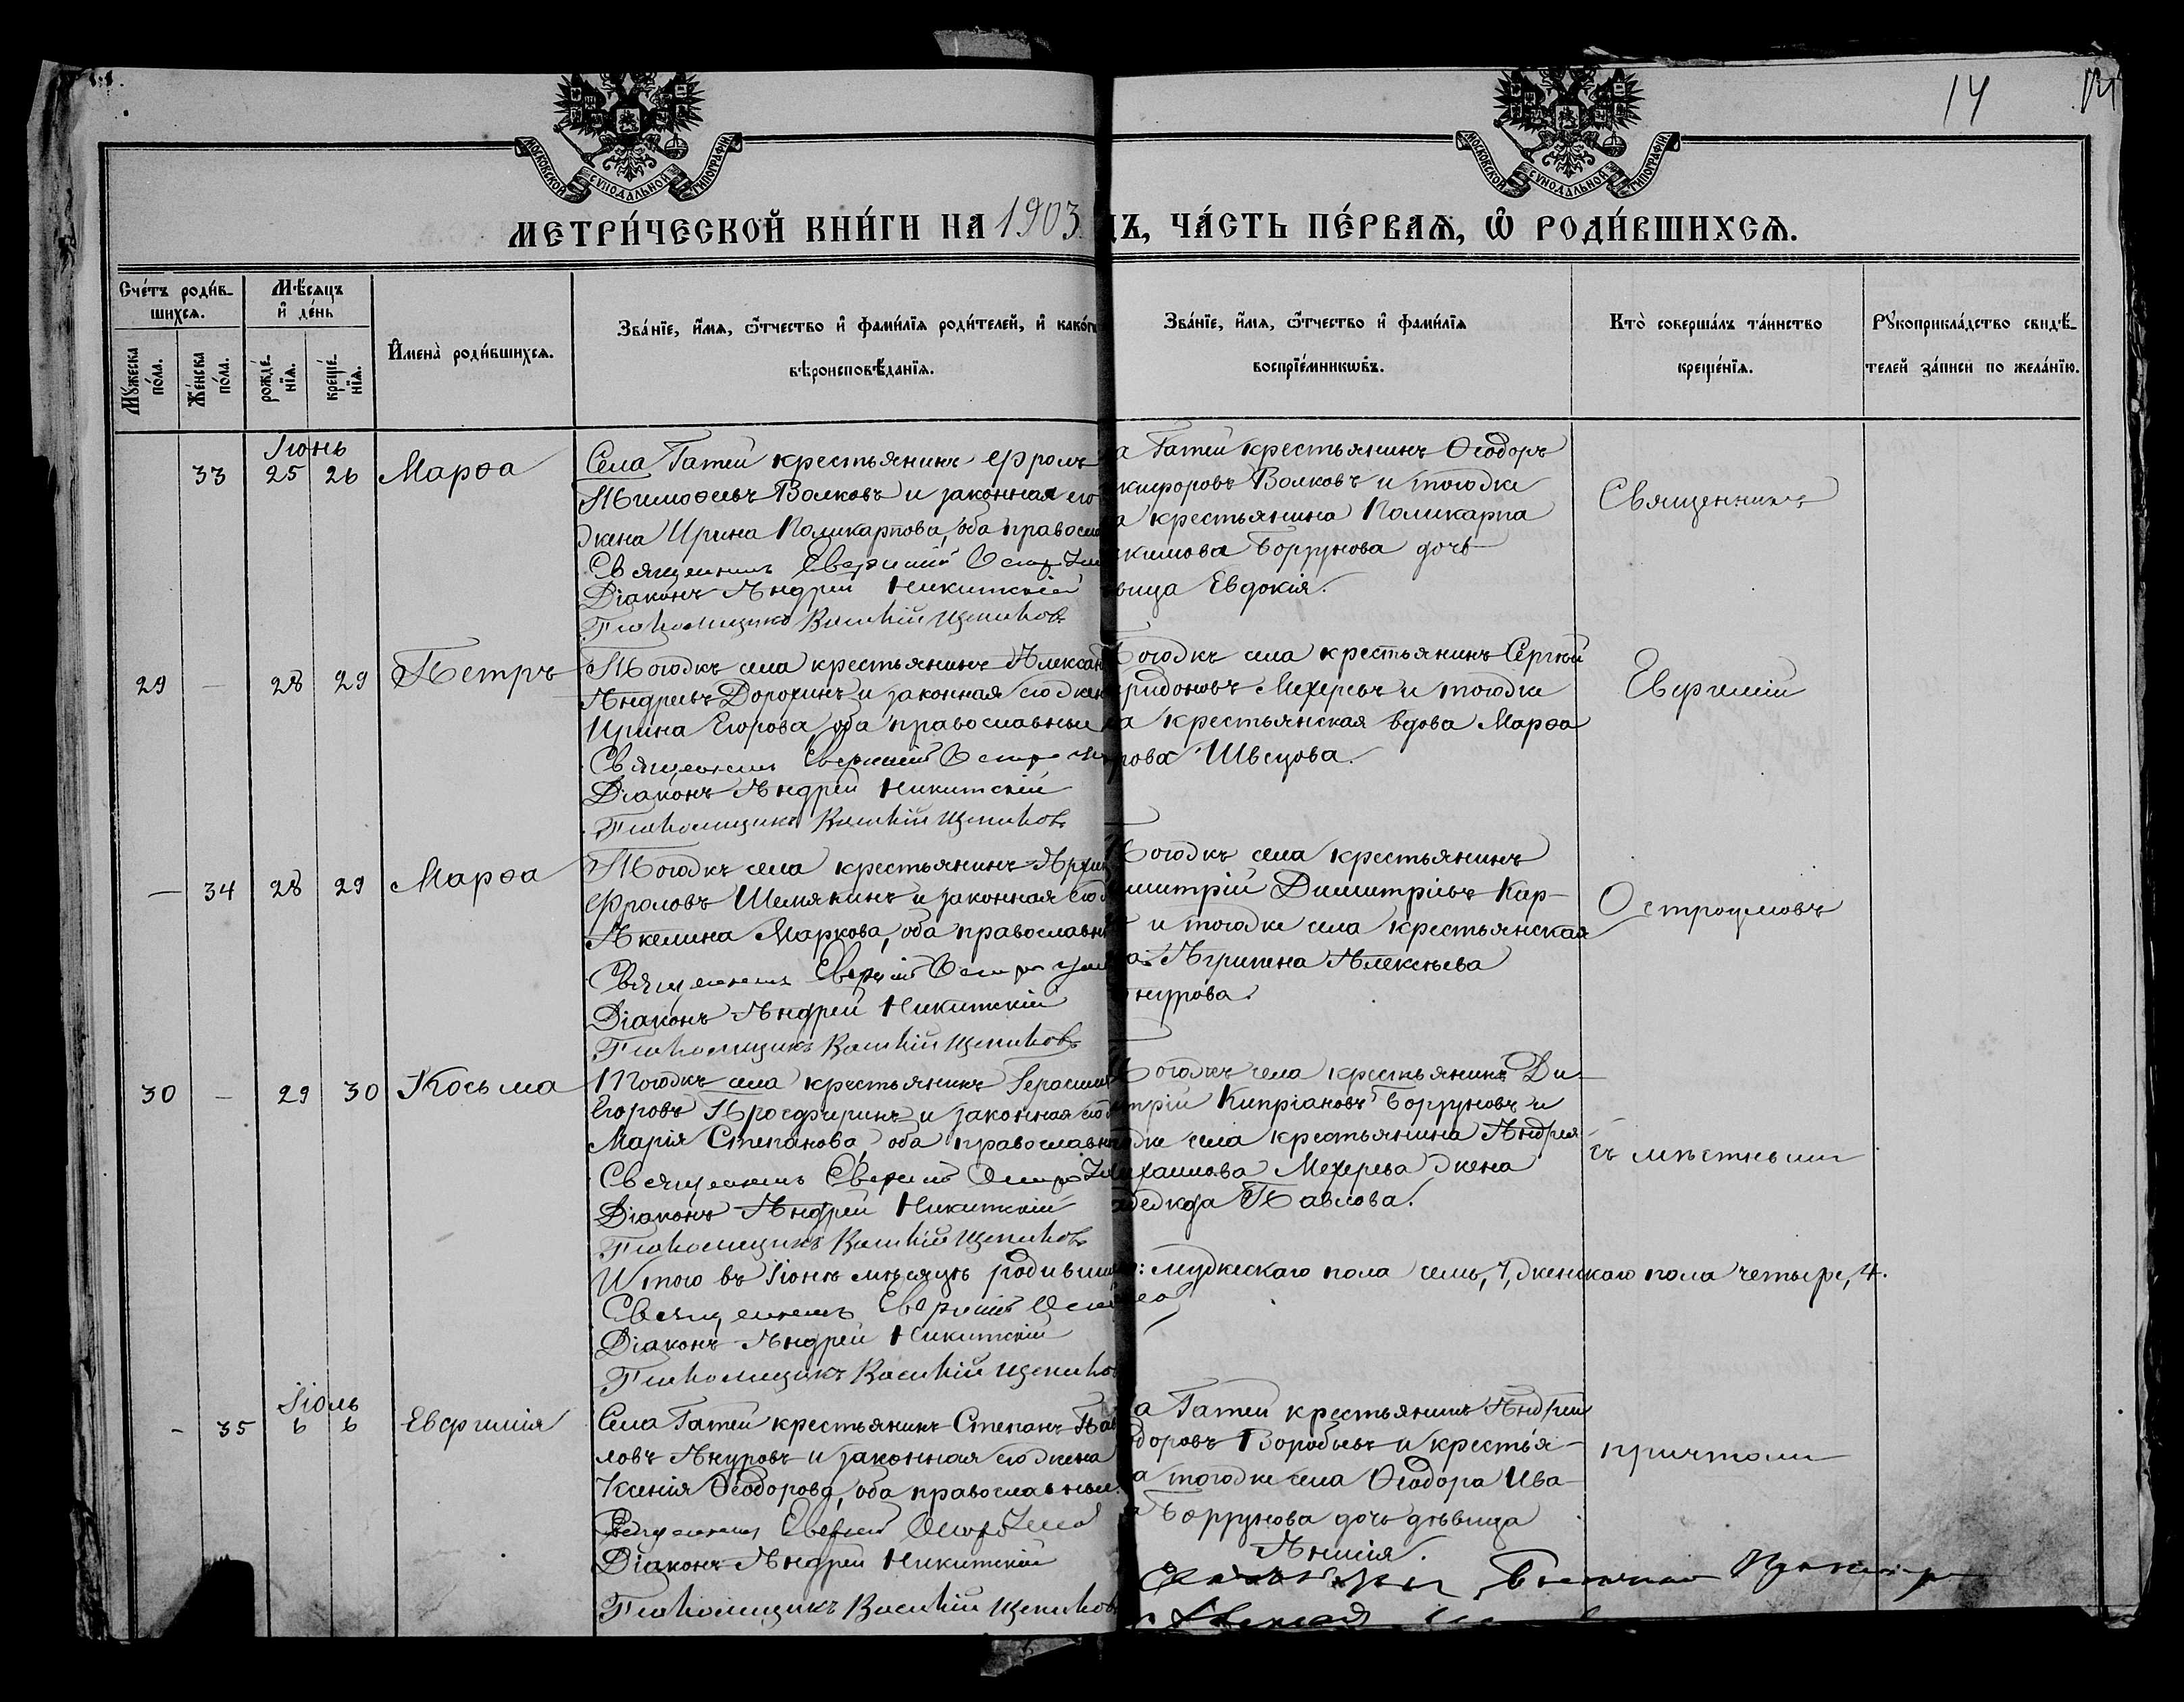 14
МОСКОВСКОЙ СѴНОДАЛЬНОЙ ТИПОГРАФІИ
МОСКОВСКОЙ СѴНОДАЛЬНОЙ ТИПОГРАФІИ
МЕТРИ́ЧЕСКОЙ КНИ́ГИ НА 1903 ДЪ, ЧА́СТЬ ПЕ́РВАѦ, Ѡ҆ РОДИ́ВШИХСѦ.
Сче́тъ роди́в-
шихсѧ.
Мꙋ́жеска по́ла.
Же́нска по́ла.
Мѣ́сѧцъ
и҆ де́нь
рожде́-
нїѧ.
креще́-
нїѧ.
И҆мена̀ роди́вшихсѧ.
Зва́нїе, и҆́мѧ, ѻ҆́тчество и҆ фами́лїѧ роди́телей, и҆ како́гѡ
вѣроисповѣ́данїѧ.
Зва́нїе, и҆́мѧ, ѻ҆́тчество и҆ фами́лїѧ
воспрїе́мникѡвъ.
Кто̀ соверша́лъ та́инство
креще́нїѧ.
Рꙋкоприкла́дство свидѣ́-
телей за́писи по жела́нїю.
Іюнь
33 25 26 Марѳа
Села Гатей крестьянинъ Фролъ
Тимоѳеевъ Волковъ и законная его
жена Ирина Поликарпова, оба правосла
Священникъ Евѳимій Остроум
Діаконъ Андрей Никитскій
Псаломщикъ Василій Щепиловъ
а Гатей крестьянинъ Ѳеодоръ
кифоровъ Волковъ и тогоже
а крестьянина Поликарпа
кимова Боррунова дочь
вица Евдокія.
Священникъ
29 — 28 29 Петръ
Тогожъ села крестьянинъ Алексан
Андреевъ Дорохинъ и законная его жен
Ирина Егорова, оба православные
Священникъ Евѳимій Остроум
Діаконъ Андрей Никитскій
Псаломщикъ Василій Щепиловъ
Тогожъ села крестьянинъ Сергей
иридоновъ Мехеревъ и тогоже
ла крестьянская вдова Марѳа
рова Швецова.
Евѳимій
— 34 28 29 Марѳа
Тогожъ села крестьянинъ Архип
Фроловъ Шемякинъ и законная его ж
Акелина Маркова, оба православн
Священникъ Евѳимій Остроум
Діаконъ Андрей Никитскій
Псаломщикъ Василій Щепиловъ
Тогожъ села крестьянинъ
имитрій Димитріевъ Кар-
и тогоже села крестьянская
а Агрипена Алексѣева
нурова.
Остроумовъ
30 — 29 30 Косьма
Тогожъ села крестьянинъ Герасим
Егоровъ Просфиринъ и законная его ж
Марія Степанова, оба православн
Священникъ Евѳимій Остроум
Діаконъ Андрей Никитскій
Псаломщикъ Василій Щепиловъ
Тогожъ села крестьянинъ Ди-
трій Кипріановъ Борруновъ и
оже села крестьянина Андрея
ихаилова Мехерева жена
адежда Павлова.
съ мѣстнымъ
Итого въ Іюнѣ мѣсяцѣ родивши : мужескаго пола семь, 7, женскаго пола четыре, 4.
Священникъ Евѳимій
Діаконъ Андрей Никитскій
Псаломщикъ Василій Щепилов
Іюль
- 35 6 6 Евфимія
Села Гатей крестьянинъ Степанъ Пав
ловъ Ануровъ и законная его жена
Ксенія Ѳеодорова, оба православные.
Священникъ Евѳимій Остроумо
Діаконъ Андрей Никитскій
Псаломщикъ Василій Щепилов
а Гатей крестьянинъ Андрей
доровъ Воробьевъ и крестья-
а тогоже села Ѳеодора Ива-
а Боррунова дочь дѣвица
Анисія.
причтомъ